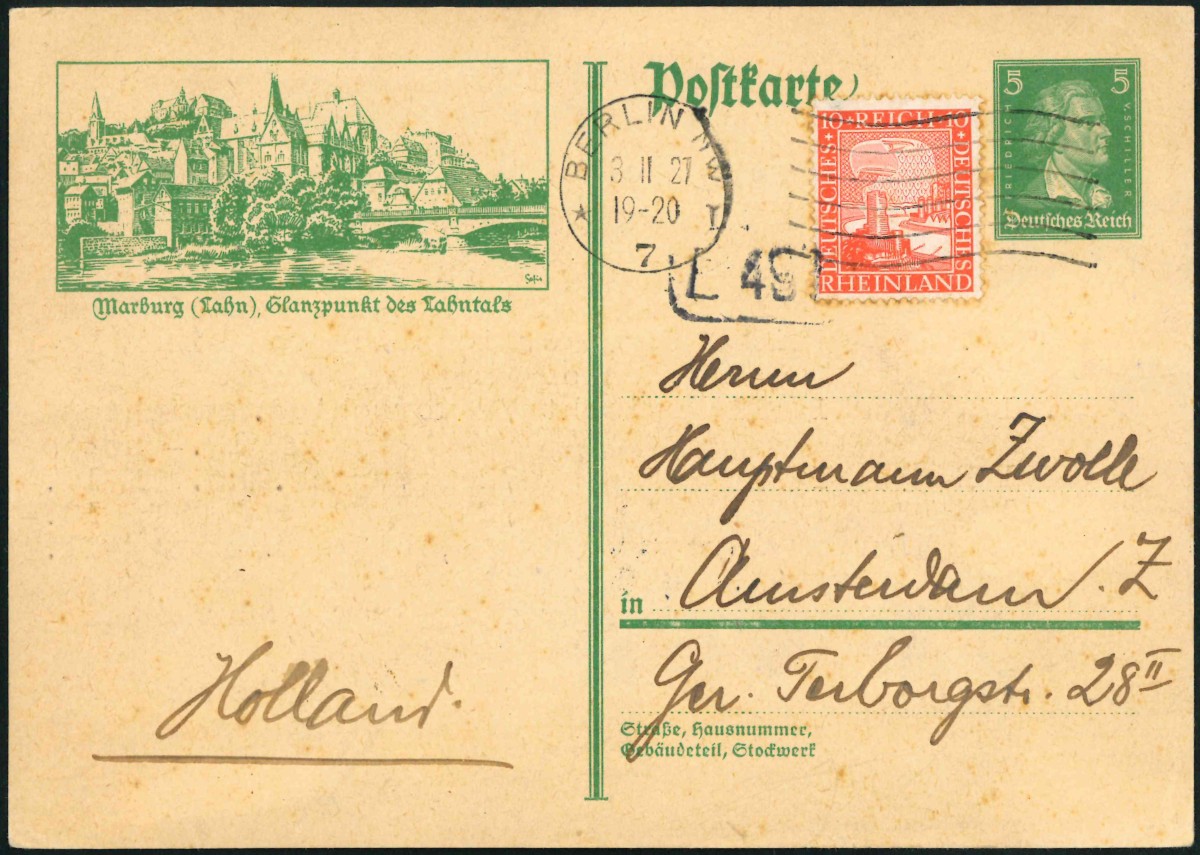 Postkarte
Marburg (Lahn), Glanzpunkt des Lahntals
BERLIN NW
3 11 27
19-20
7
10 REICH 10
DEUTSCHES
DEUTSCHES
RHEINLAND
5 5
FRIEDRICH
V. SCHILLER
Deutsches Reich
L 491
Herrn
Hauptmann Zwolle
in Amsterdam. Z
Ger. Terborgstr. 28 II
Straße, Hausnummer,
Gebäudeteil, Stockwerk
Holland.